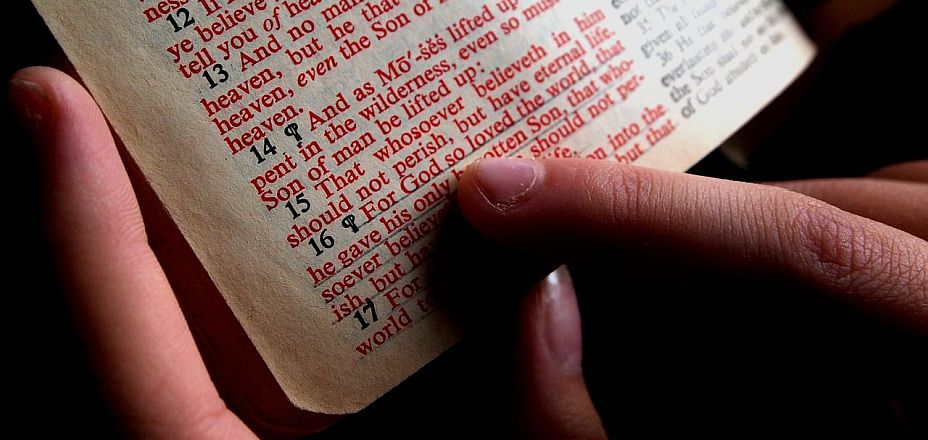 12 If
ye believe
tell you of
13 And no man
heaven, but he that
heaven, even the Son of
heaven.
14 ¶ And as Mō´-ṣĕṣ lifted up
pent in the wilderness, even so must
Son of man be lifted up:
15 That whosoever believeth in him
should not perish, but have eternal life.
16 ¶ For God so loved the world, that
he gave his only otten Son, that who-
soever believe should not per-
ish, but ha fe.
17 For on into the
world to but that
given
36 He
everlasting
the Son shall not
of God